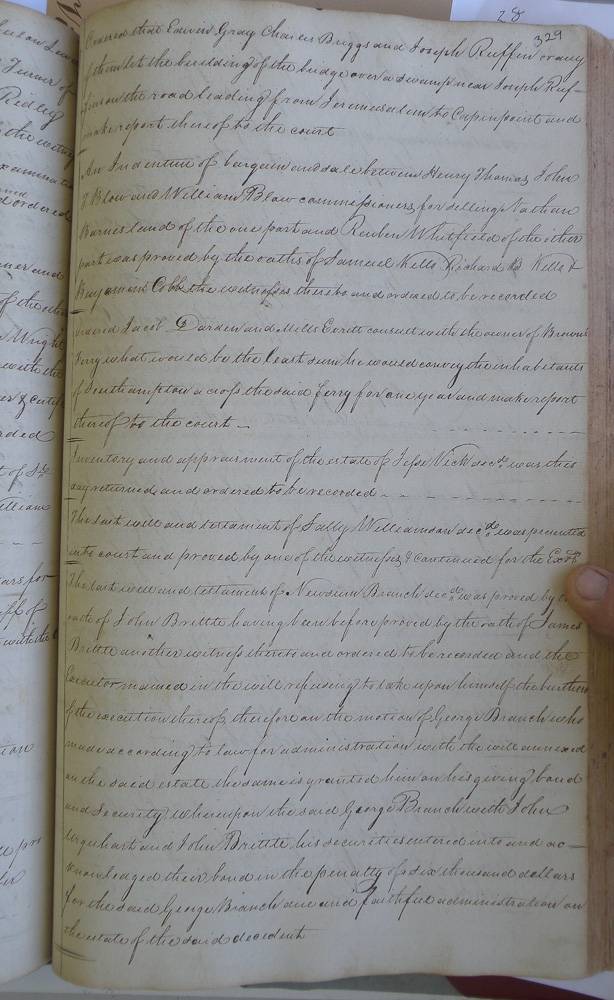 28
329
Ordered that Edwin Gray Charles Briggs and Joseph Ruffin or any
of them let the building of the bridge over a swamp near Joseph Ruf-
fins on the road leading from Jerusalem to Cypinpoint and
make report thereof to the court
An Indenture of bargain and sale between Henry Thomas, John
T Blow and William Blow commissioners for selling Nathan
Barnes land of the one part and Reuben Whitfield of the other
part was proved by the oaths of Samuel Kello Richard B Kello &
Benjamin Cobb the witnesses thereto and ordered to be recorded
Ordered Jacob Darden and Mills Everitt consult with the owner of Browns
Ferry what would be the least sum he would convey the inhabitants
of Southampton across the said ferry for one year and make report
thereof to the court
Inventory and appraisment of the estate of Jesse Vick decd. was this
day returned and ordered to be recorded
The last will and testament of Sally Williamson decd. was presented
into court and proved by one of the witnesses & continued for the Exor.
The last will and testament of Newsum Branch decd. was proved by the
oath of John Brittle having been before proved by the oath of James
Brittle another witness thereto and ordered to be recorded and the
Executor named in the will refusing to take upon himself the burthen
of the execution thereof, therefore on the motion of George Branch who
made according to law for administration with the will annexed
on the said estate the same is granted him on his giving bond
and security whereupon the said George Branch with John
Urquhart and John Brittle his securities entered into and ac-
knowledged their bond in the penalty of six thousand dollars
for the said George Branch due and faithful administration on
the estate of the said decedent